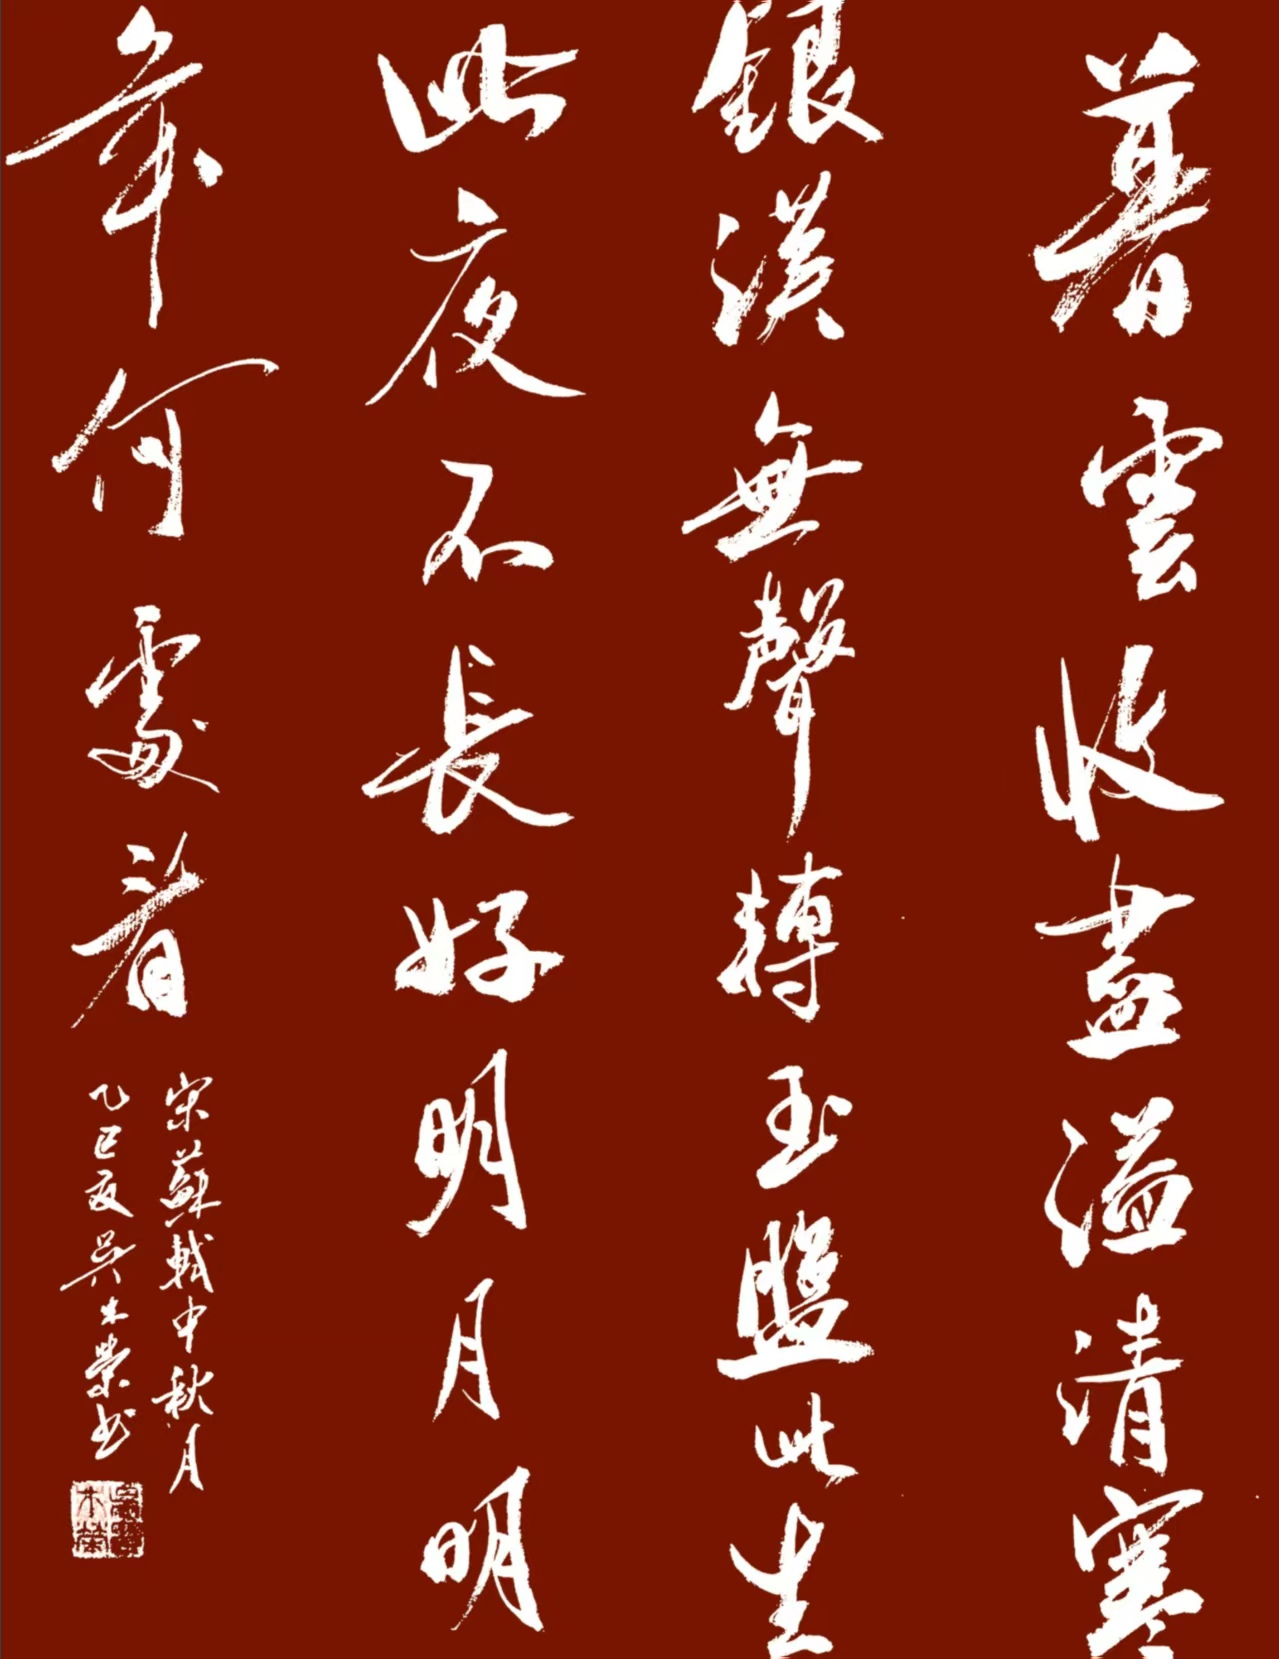 暮雲收盡溢清寒
銀漢無聲轉玉盤此生
此夜不長好明月明
年何處看
宋蘇軾中秋月
乙巳夜吳木榮书
吳
木榮